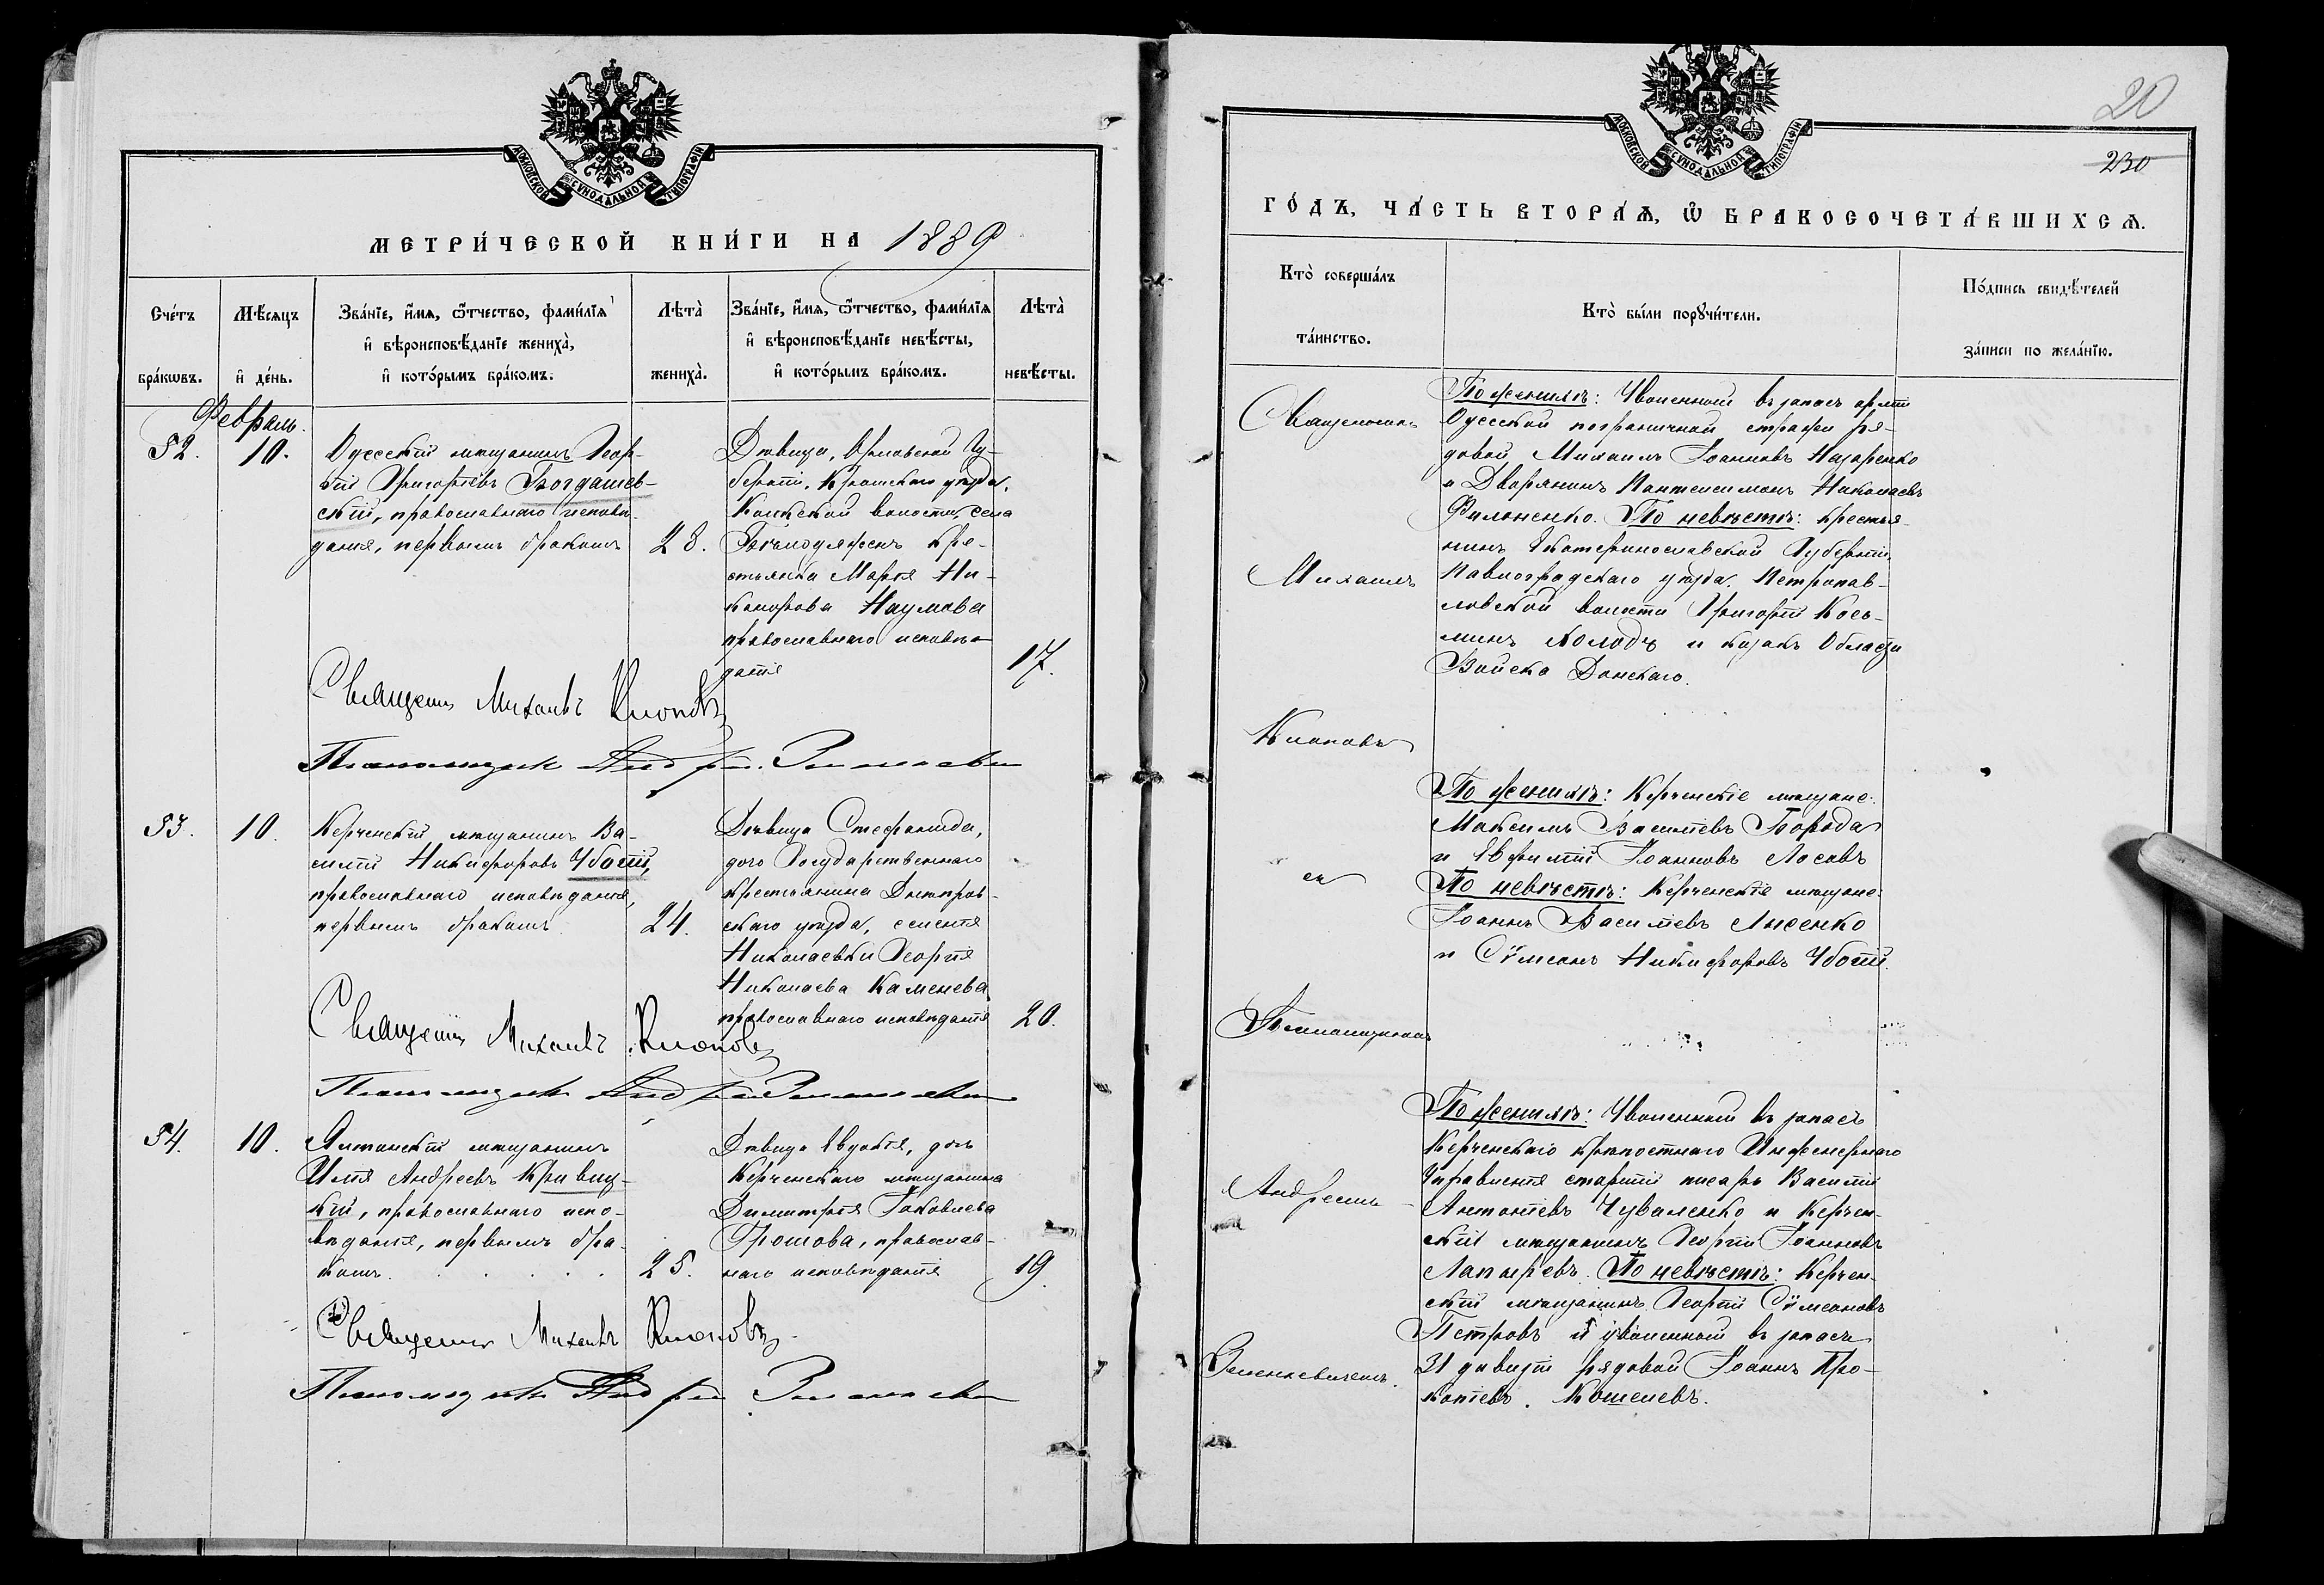 МОСКОВСКОЙ СѴНОДАЛЬНОЙ ТИПОГРАФІИ
МЕТРИ́ЧЕСКОЙ КНИ́ГИ НА 1889
Сче́тъ бра́кѡвъ.
Мѣ́сяцъ и҆ де́нь.
Зва́нїе, и҆́мя, ѻ҆́тчество, фами́лїя и҆ вѣроисповѣ́данїе жениха̀, и҆ кото́рымъ бра́комъ.
Лѣта̀ жениха̀.
Зва́нїе, и҆́мя, ѻ҆́тчество, фами́лїя и҆ вѣроисповѣ́данїе невѣ́сты, и҆ кото́рымъ бра́комъ.
Лѣта̀ невѣ́сты.
Февраль.
52.
10.
Одесскій мѣщанинъ Геор-
гій Григоріевъ Богдашев-
скій, православнаго исповѣ-
данія, первымъ бракомъ
28.
Дѣвица, Орловской Гу-
берніи, Кромскаго уѣзда,
волости, села
кре-
стьянка Марія Ни-
канорова Наумова
православнаго исповѣ-
данія
17.
Священникъ Михаилъ Клоповъ
Псаломщикъ Андрей
53.
10.
Керченскій мѣщанинъ Ва-
силій Никифоровъ Убогій,
православнаго исповѣданія,
первымъ бракомъ
24.
Дѣвица Стефанида,
дочь Государственнаго
крестьянина Днѣпров-
скаго уѣзда, селенія
Николаевки Георгія
Николаева Каменева,
православнаго исповѣданія
20.
Священникъ Михаилъ Клоповъ
Псаломщикъ Андрей
54.
10.
Ялтинскій мѣщанинъ
Илія Андреевъ Кривиц-
кій, православнаго испо-
вѣданія, первымъ бра-
комъ
25.
Дѣвица Евдокія, дочь
Керченскаго мѣщанина
Димитрія Іаковлева
Грошова, православ-
наго исповѣданія
19.
Священникъ Михаилъ Клоповъ
Псаломщикъ Андрей
20
230
МОСКОВСКОЙ СѴНОДАЛЬНОЙ ТИПОГРАФІИ
ГО́ДЪ, ЧА́СТЬ ВТОРА́Я, Ѡ҆ БРАКОСОЧЕТА́ВШИХСЯ.
Кто̀ соверша́лъ та́инство.
Кто̀ бы́ли порꙋчи́тели.
По́дпись свидѣ́телей за́писи по жела́нїю.
Священникъ
Михаилъ
Клоповъ
съ
Псаломщикомъ
Андреемъ
По женихѣ: Уволенный въ запасъ арміи
Одесской пограничной стражи ря-
довой Михаилъ Іоанновъ Назаренко
и Дворянинъ Пантелеимонъ Николаевъ
Филоненко. По невѣстѣ: крестья-
нинъ Екатеринославской Губерніи
Павлоградскаго уѣзда, Петропав-
ловской волости Григорій Косъ-
минъ Колодъ и козакъ Области
Войска Донскаго.
По женихѣ: Керченскіе мѣщане:
Максимъ Василіевъ Борода
и Евфимій Іоанновъ Лосевъ
По невѣстѣ: Керченскіе мѣщане:
Іоаннъ Василіевъ Лысенко
и Сѵмеонъ Никифоровъ Убогій.
По женихѣ: Уволенный въ запасъ
Керченскаго крѣпостнаго Инженернаго
Управленія старшій писарь Василій
Антоніевъ Чуваленко и Керчен-
скій мѣщанинъ Георгій Іоанновъ
Лапыревъ. По невѣстѣ: Керчен-
скій мѣщанинъ Георгій Сѵмеоновъ
Петровъ и уволенный въ запасъ
31 дивизіи рядовой Іоаннъ Про-
копіевъ Кошелевъ.